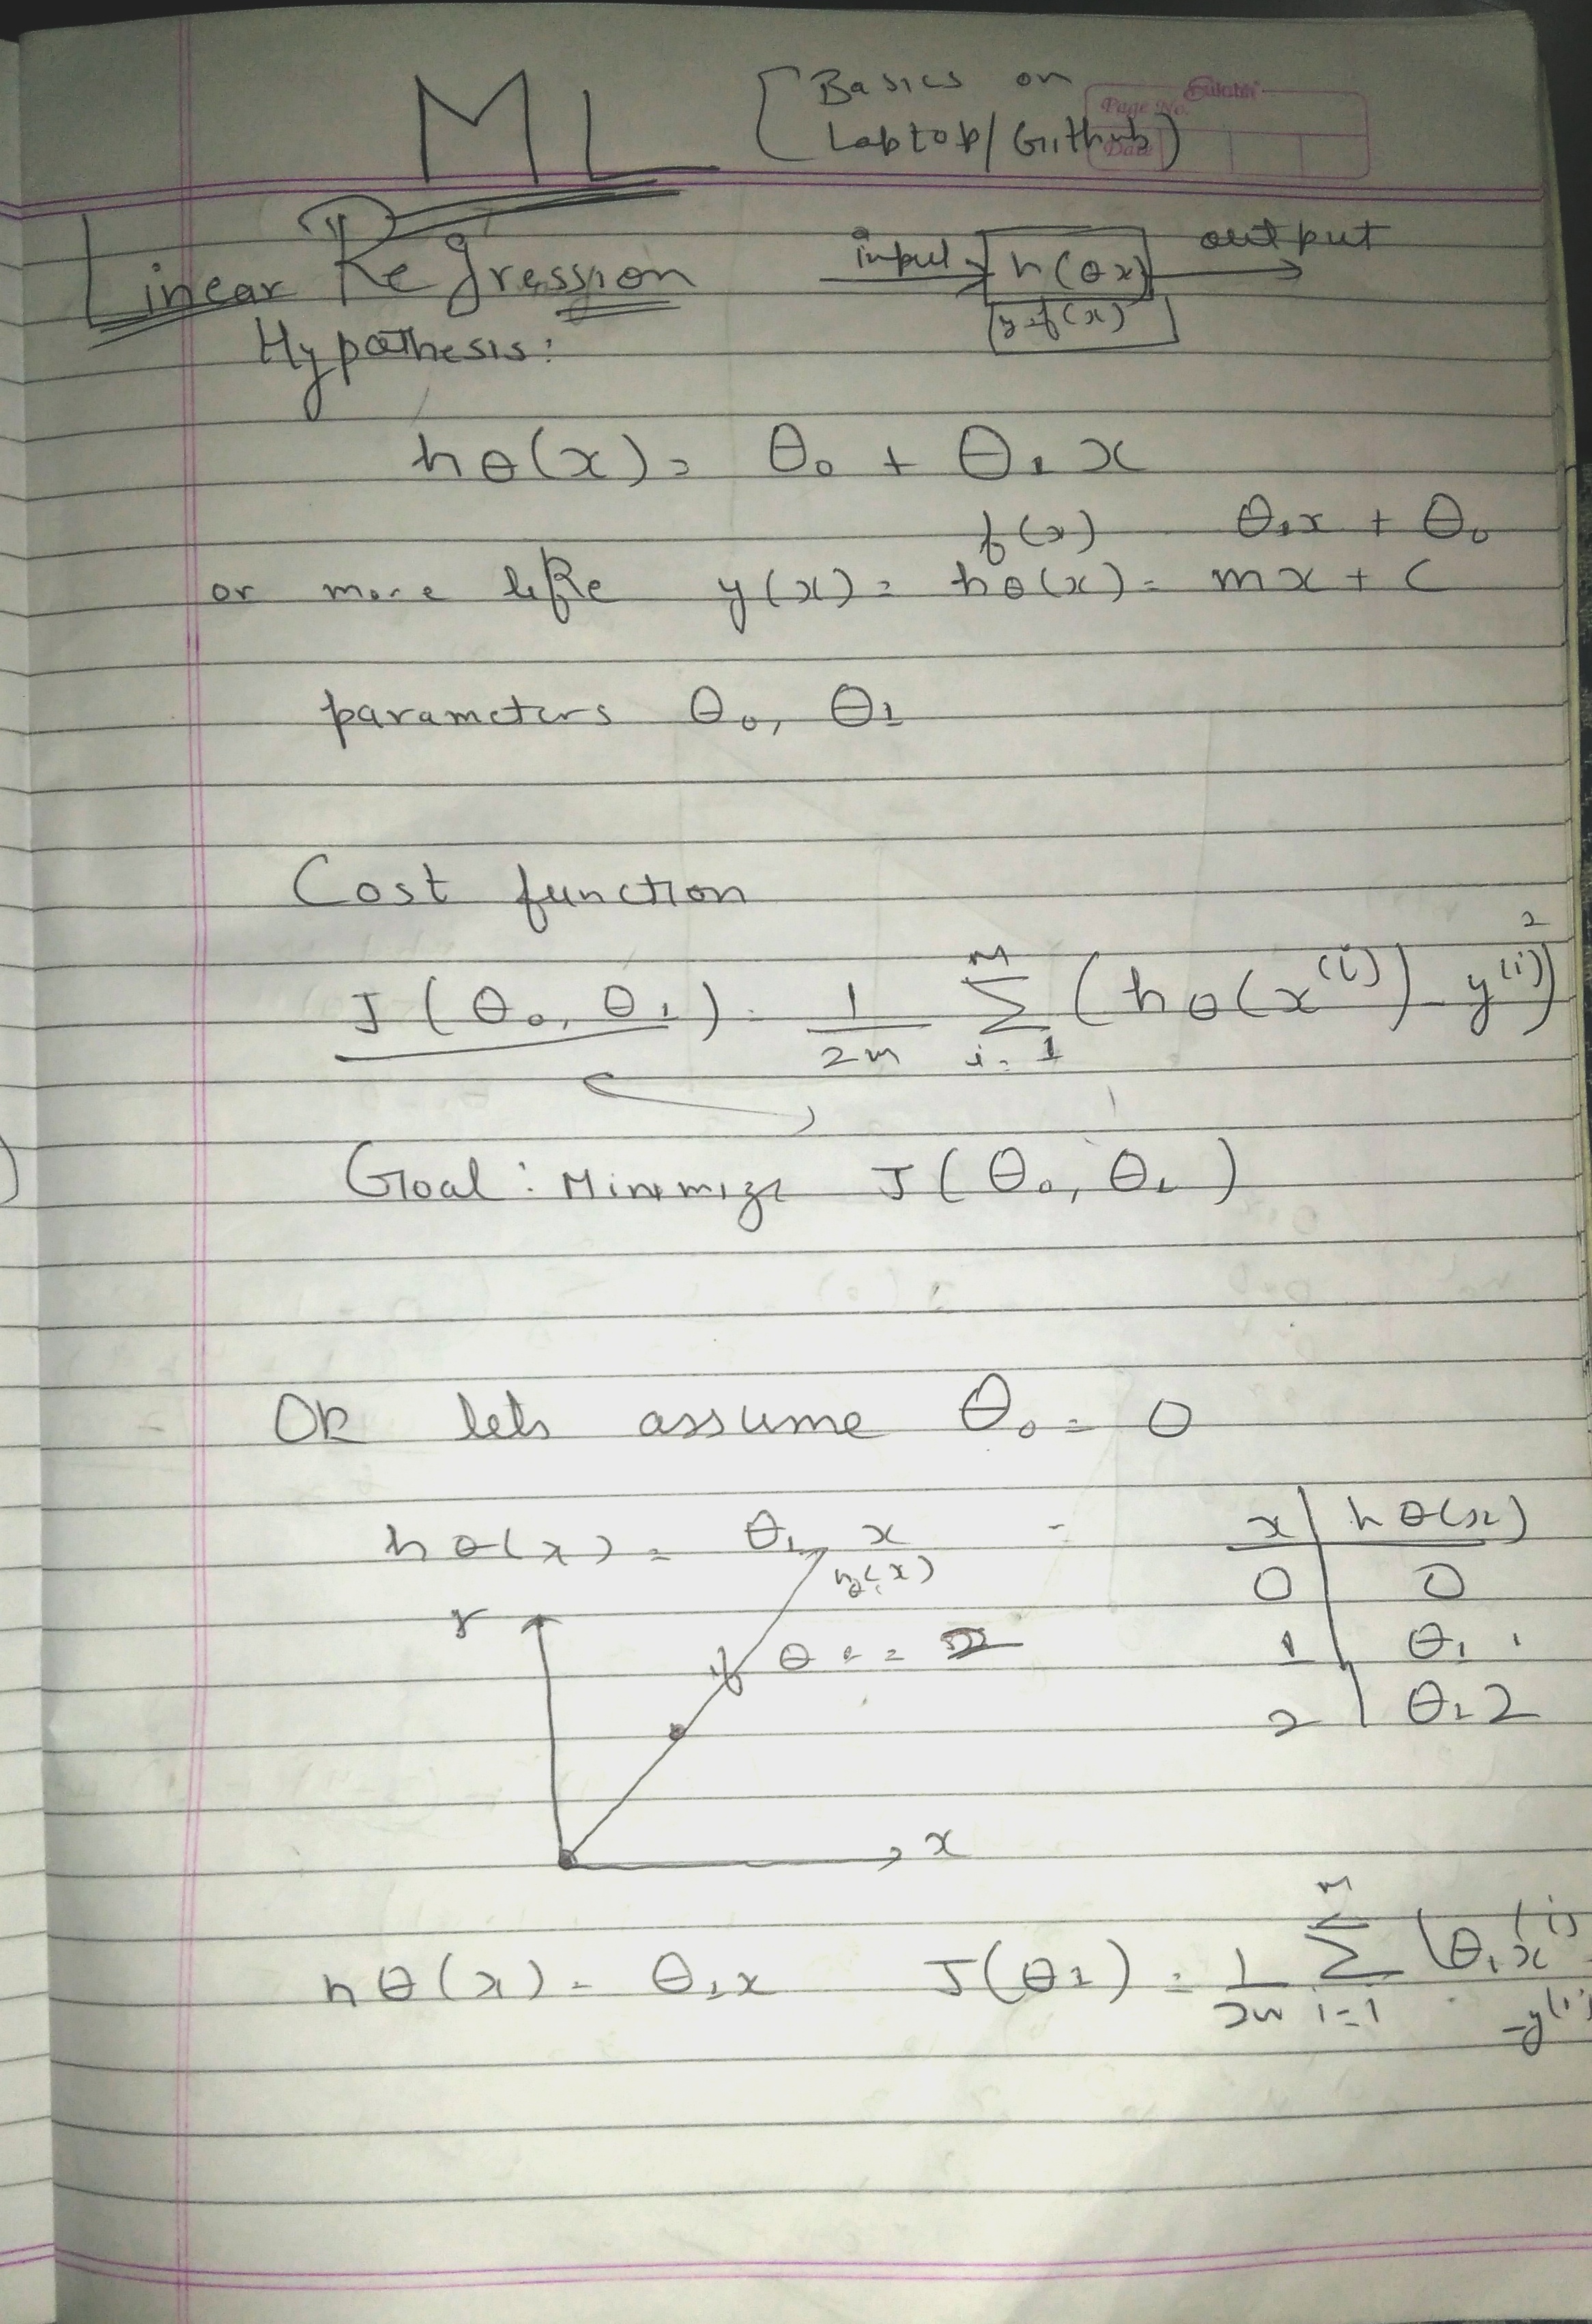 ML [Basics on
Laptop/Github)
Sulabh
Page No.
Date
Linear Regression
input h(θx) output
y=f(x)
Hypothesis:
hθ(x) = θ₀ + θ₁ x
f(x) θ₁x + θ₀
or more like y(x) = hθ(x) = mx + c
parameters θ₀, θ₁
Cost function
J(θ₀, θ₁) = 1/2m Σ_{i=1}^{m} (hθ(x⁽ⁱ⁾) - y⁽ⁱ⁾)²
Goal: Minimize J(θ₀, θ₁)
OK lets assume θ₀ = 0
hθ(x) = θ₁ x
x | hθ(x)
0 | 0
1 | θ₁
2 | θ₁2
hθ(x)
Y
if θ₁ =
x
hθ(x) = θ₁x J(θ₁) = 1/2m Σ_{i=1}^{m} (θ₁x⁽ⁱ⁾
-y⁽ⁱ⁾